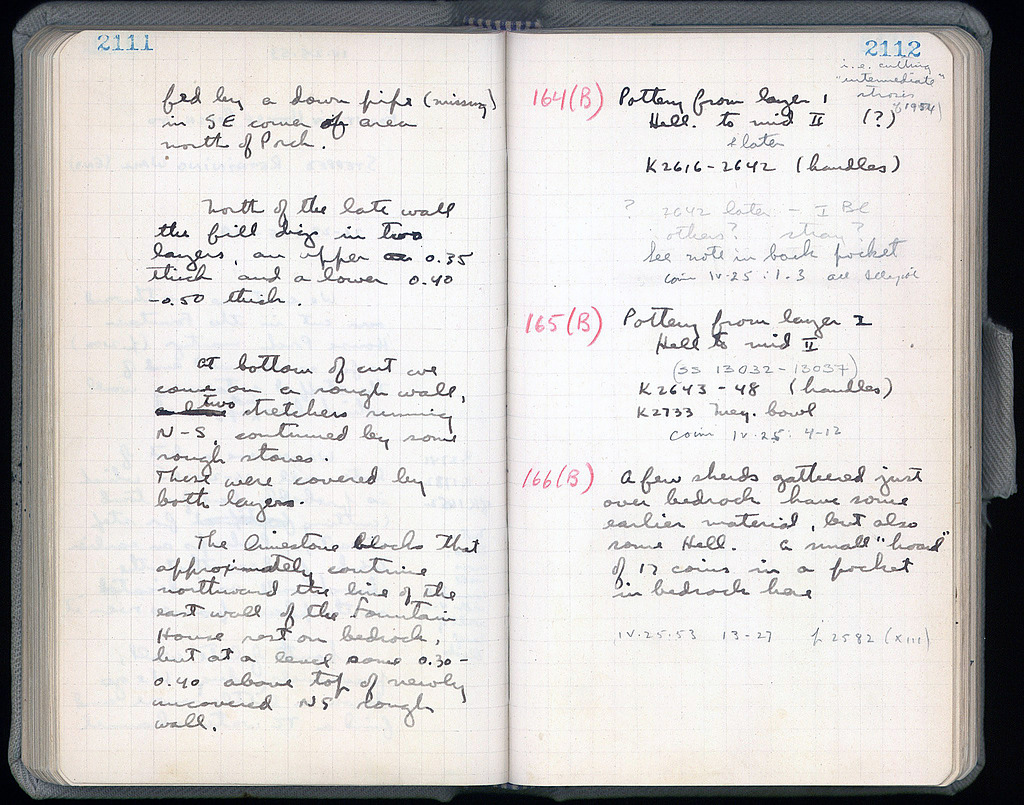 2111
fed by a down pipe (missing)
in SE corner of area
north of Porch.
North of the late wall
the fill dug in two
layers, an upper 0.35
thick and a lower 0.40
-0.50 thick.
At bottom of cut we
come on a rough wall,
two stretchers running
N-S, continued by some
rough stones.
These were covered by
both layers.
The limestone blocks that
approximately continue
northward the line of the
east wall of the Fountain
House rest on bedrock,
but at a level some 0.30-
0.40 above top of newly
uncovered NS rough
wall.
2112
i.e. cutting
"intermediate"
strosis
of 1954)
164(B) Pottery from layer 1
Hell. to mid II (?)
& later
K2616-2642 (handles)
? 2642 later - I BC
others? stray?
See note in back pocket
coin IV-25: 1-3 all illegible
165(B) Pottery from layer 2
Hell to mid II
(SS 13032-13037)
K2643-48 (handles)
K2733 Meg. bowl
coin IV.25: 4-12
166(B) A few sherds gathered just
over bedrock have some
earlier material, but also
some Hell. A small "hoard"
of 17 coins in a pocket
in bedrock have
IV.25.53 13-27 p. 2582 (XIII)